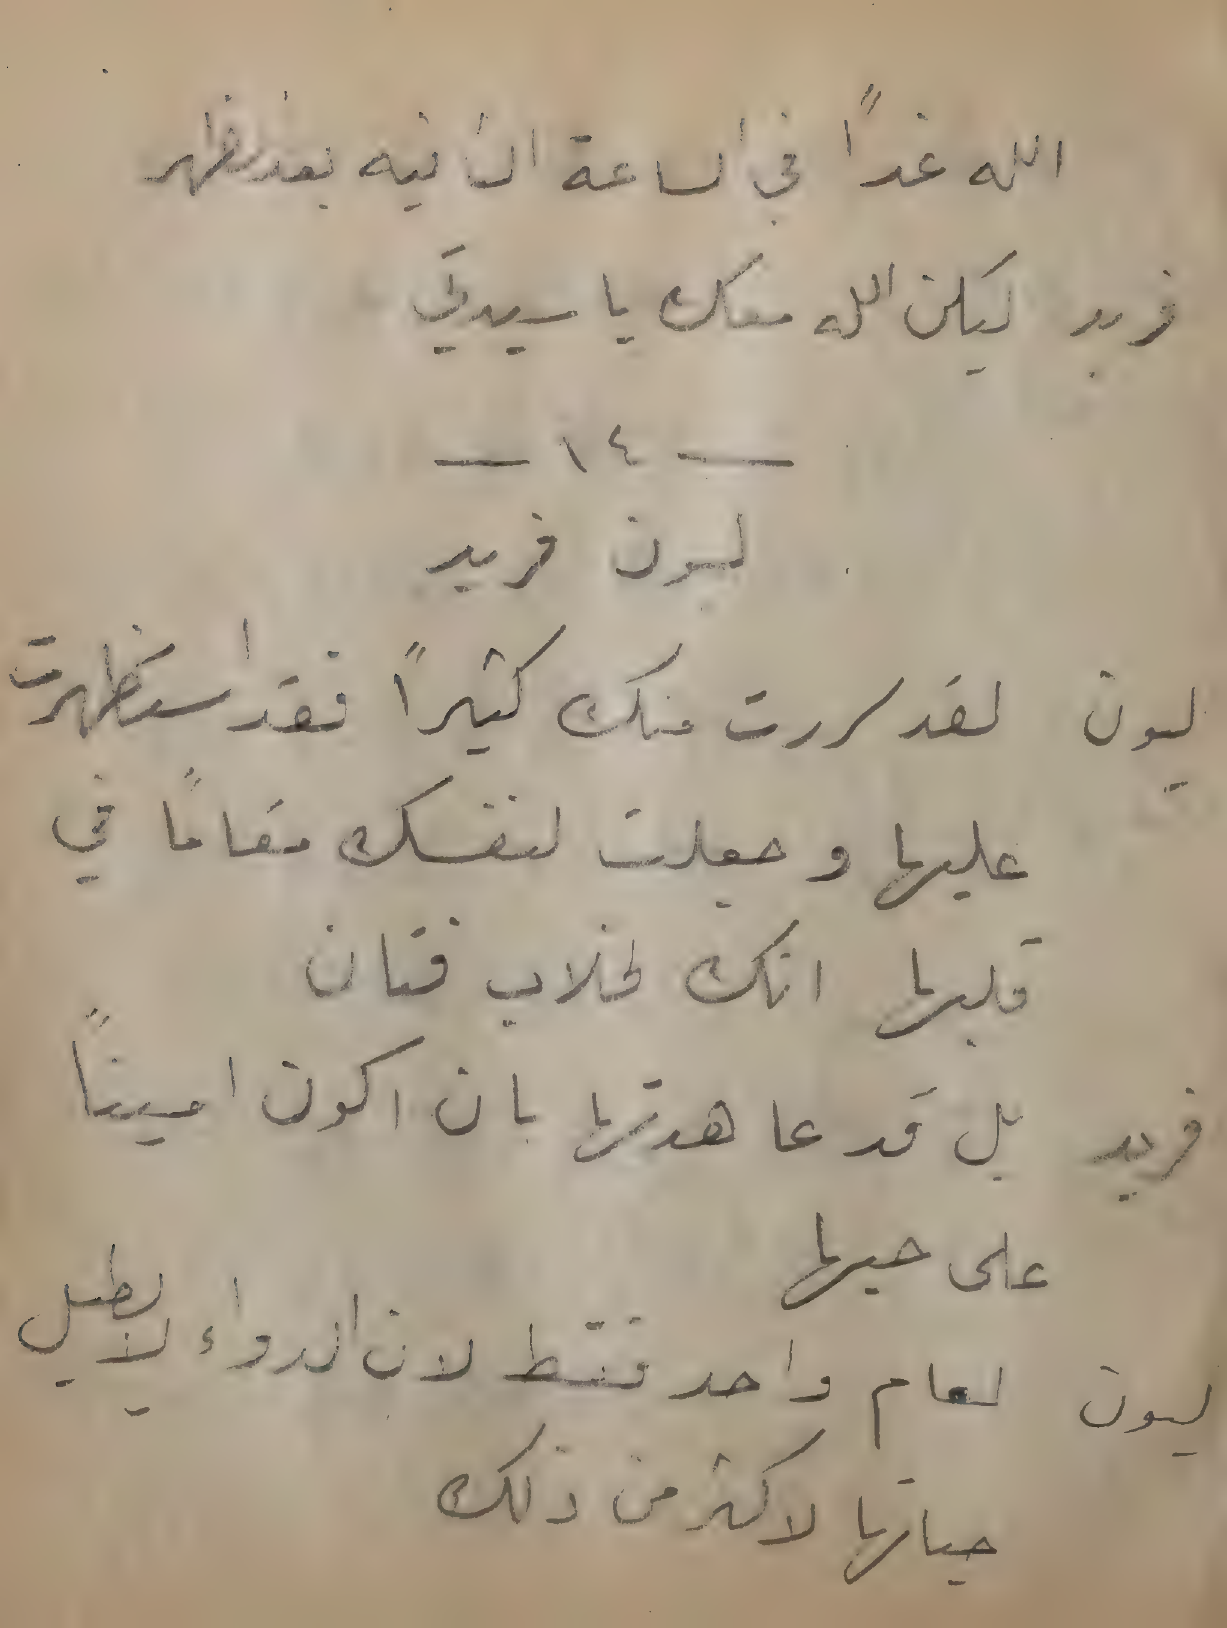 الله غداً في الساعة الثانيه بعد ظهر
فريد ليكن الله معك يا سيدتي
— ١٤ —
ليون فريد
ليون لقد سررت منك كثيراً فقد استظهرت
عليها وجعلت لنفسك مقاماً في
قلبها انك لخلاب فتان
فريد بل قد عاهدتها بان اكون اميناً
على حبها
ليون لعام واحد فقط لان الدواء لا يطيل
حياتها لاكثر من ذلك